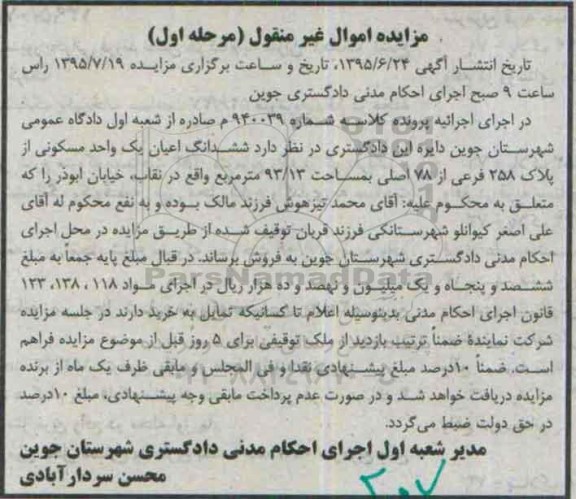 مزایده اموال غیر منقول (مرحله اول)
تاریخ انتشار آگهی ۱۳۹۵/۶/۲۴، تاریخ و ساعت برگزاری مزایده ۱۳۹۵/۷/۱۹ راس
ساعت ۹ صبح اجرای احکام مدنی دادگستری جوین
در اجرای اجرائیه پرونده کلاسه شماره ۹۴۰۰۳۹ م صادره از شعبه اول دادگاه عمومی
شهرستان جوین دایره این دادگستری در نظر دارد ششدانگ اعیان یک واحد مسکونی از
پلاک ۲۵۸ فرعی از ۷۸ اصلی بمساحت ۹۳/۱۳ مترمربع واقع در نقاب، خیابان ابوذر را که
متعلق به محکوم علیه: آقای محمد تیزهوش فرزند مالک بوده و به نفع محکوم له آقای
علی اصغر کیوانلو شهرستانکی فرزند قربان توقیف شده از طریق مزایده در محل اجرای
احکام مدنی دادگستری شهرستان جوین به فروش برساند. در قبال مبلغ پایه جمعاً به مبلغ
ششصد و پنجاه و یک میلیون و نهصد و ده هزار ریال در اجرای مواد ۱۱۸، ۱۳۸، ۱۳۳
قانون اجرای احکام مدنی بدینوسیله اعلام تا کسانیکه تمایل به خرید دارند در جلسه مزایده
شرکت نمایندهٔ ضمناً ترتیب بازدید از ملک توقیفی برای ۵ روز قبل از موضوع مزایده فراهم
است. ضمناً ۱۰درصد مبلغ پیشنهادی نقدا و فی المجلس و مابقی ظرف یک ماه از برنده
مزایده دریافت خواهد شد و در صورت عدم پرداخت مابقی وجه پیشنهادی، مبلغ ۱۰درصد
در حق دولت ضبط می‌گردد.
مدیر شعبه اول اجرای احکام مدنی دادگستری شهرستان جوین
محسن سردارآبادی
۲۰۷
ParsNamadData